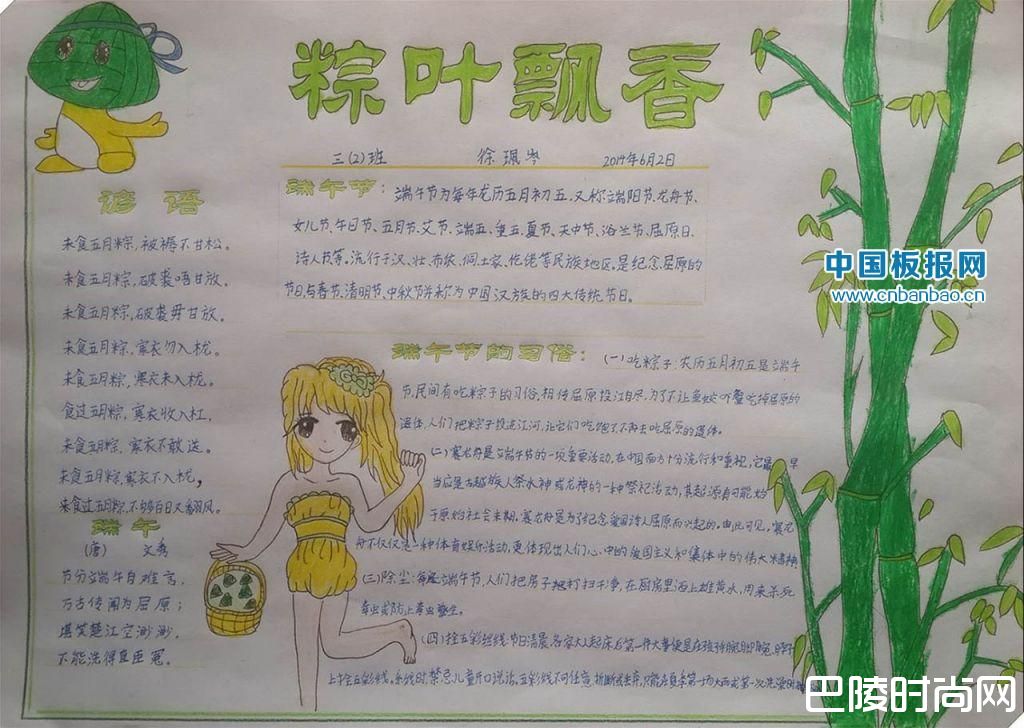 粽叶飘香
三(2)班 徐珮岑 2014年6月2日
谚语
未食五月粽，被褥不甘松。
未食五月粽，破裘唔甘放。
未食五月粽，破裘毋甘放。
未食五月粽，寒衣勿入栊。
未食五月粽，寒衣未入栊。
食过五月粽，寒衣收入杠，
未食五月粽，寒衣不敢送。
未食五月粽，寒衣不入栊，
未食过五月粽，不够百日又番风。
端午
(唐) 文秀
节分端午自难言，
万古传闻为屈原；
堪笑楚江空渺渺，
不能洗得直臣冤。
端午节：端午节为每年龙历五月初五，又称端阳节、龙舟节、
女儿节、午日节、五月节、艾节、端五、重五、夏节、天中节、浴兰节、屈原日、
诗人节等。流行于汉、壮、布依、侗、土家、仡佬等民族地区。是纪念屈原的
节日，与春节、清明节、中秋节并称为中国汉族的四大传统节日。
端午节的习俗：(一)吃粽子：农历五月初五是端午
节，民间有吃粽子的习俗，相传屈原投江自尽，为了不让鱼蛟虾蟹吃掉屈原的
遗体，人们把粽子投进江河，让它们吃饱了不再去吃屈原的遗体。
(二)赛龙舟是端午节的一项重要活动，在中国南方十分流行和重视，它最早
当应是古越族人祭水神或龙神的一种祭祀活动，其起源有可能始
于原始社会末期。赛龙舟是为了纪念爱国诗人屈原而兴起的。由此可见，赛龙
舟不仅仅是一种体育娱乐活动，更体现出人们心中的爱国主义和集体中的伟大精神
(三)除尘：每逢端午节，人们把房子打扫干净，在厨房里洒上雄黄水，用来杀死
毒虫或防止毒虫孳生。
(四)拴五彩丝线：节日清晨，各家大人起床后第一件大事便是在孩子手腕、脚腕、脖子
上拴五彩线。系线时，禁忌儿童开口说话。五彩线不可任意折断或丢弃，只能在夏季第一场大雨或第一次洗澡时
中国板报网
www.cnbanbao.cn
巴陵时尚网